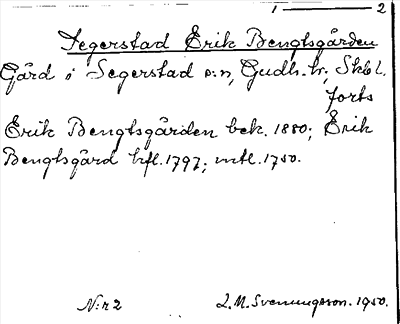 1 — 2
Segerstad Erik Bengtsgården
Gård i Segerstad s:n, Gudh. hr, Skbl.
forts
Erik Bengtsgården bek. 1880; Erik
Bengtsgård hfl. 1797; mtl. 1750.
N:r 2
L.M. Svenungsson. 1950.